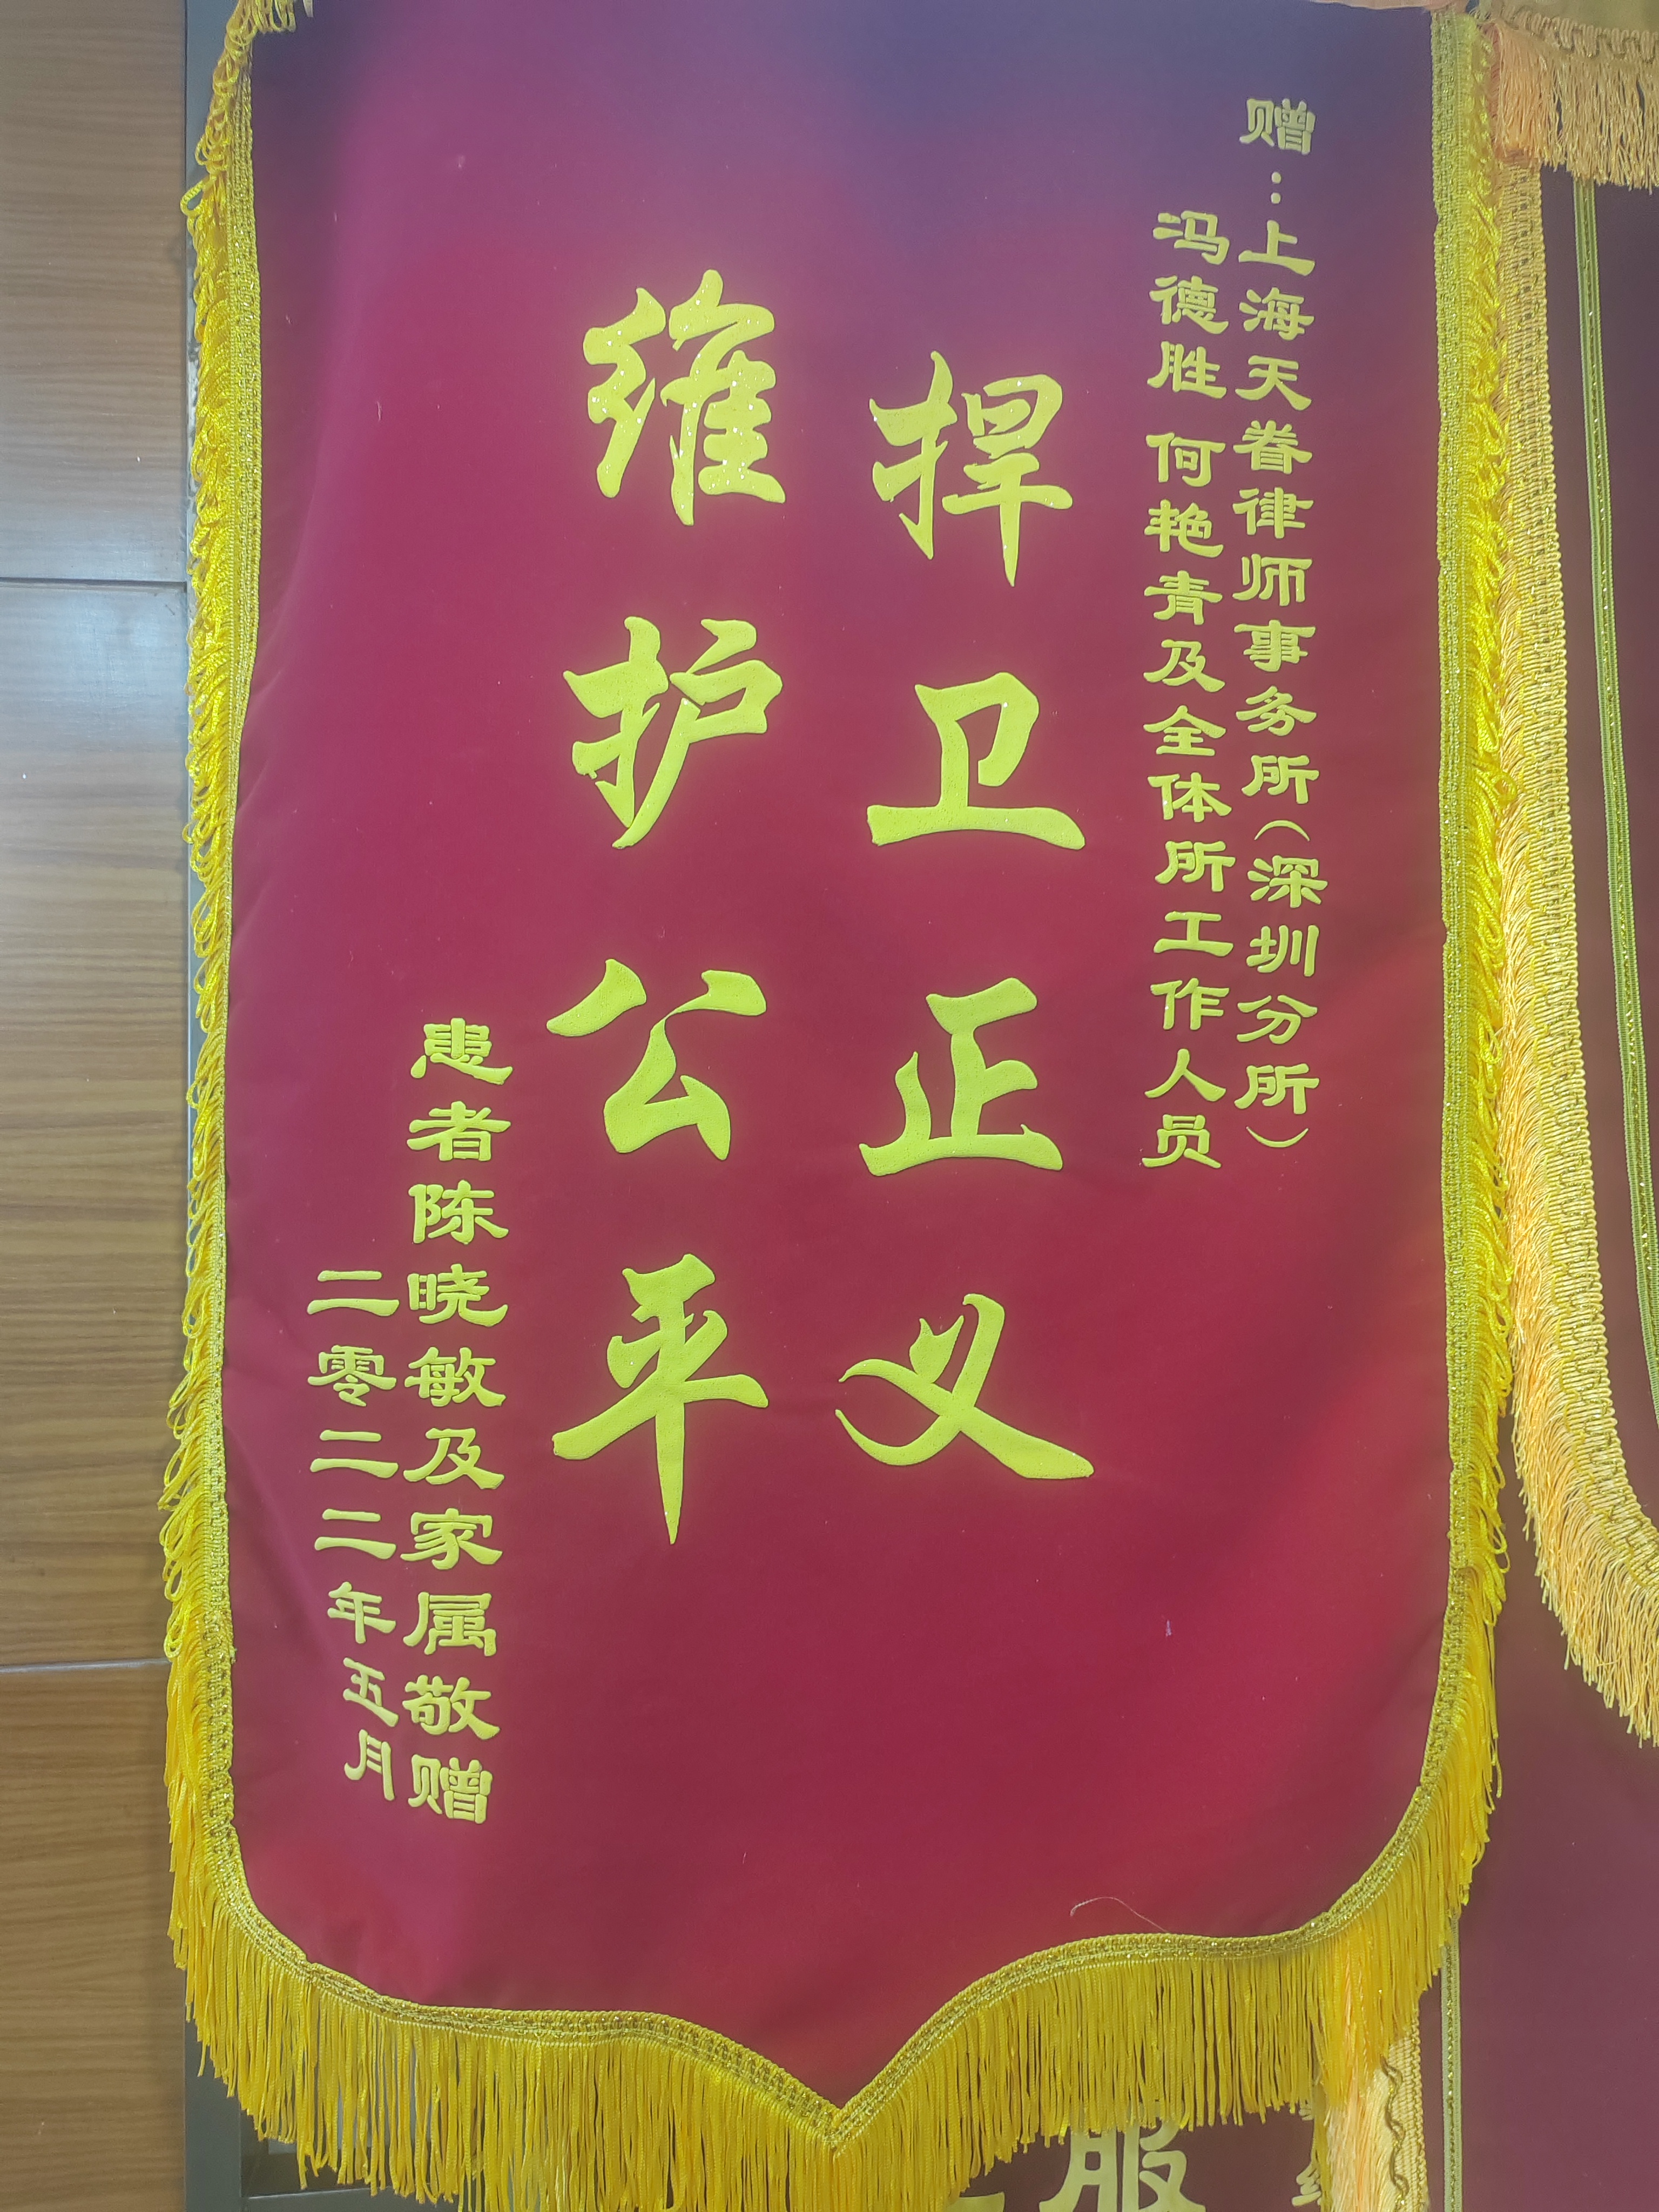 赠：上海天眷律师事务所（深圳分所）
冯德胜 何艳青及全体所工作人员
捍卫正义
维护公平
患者陈晓敏及家属敬赠
二零二二年五月
服